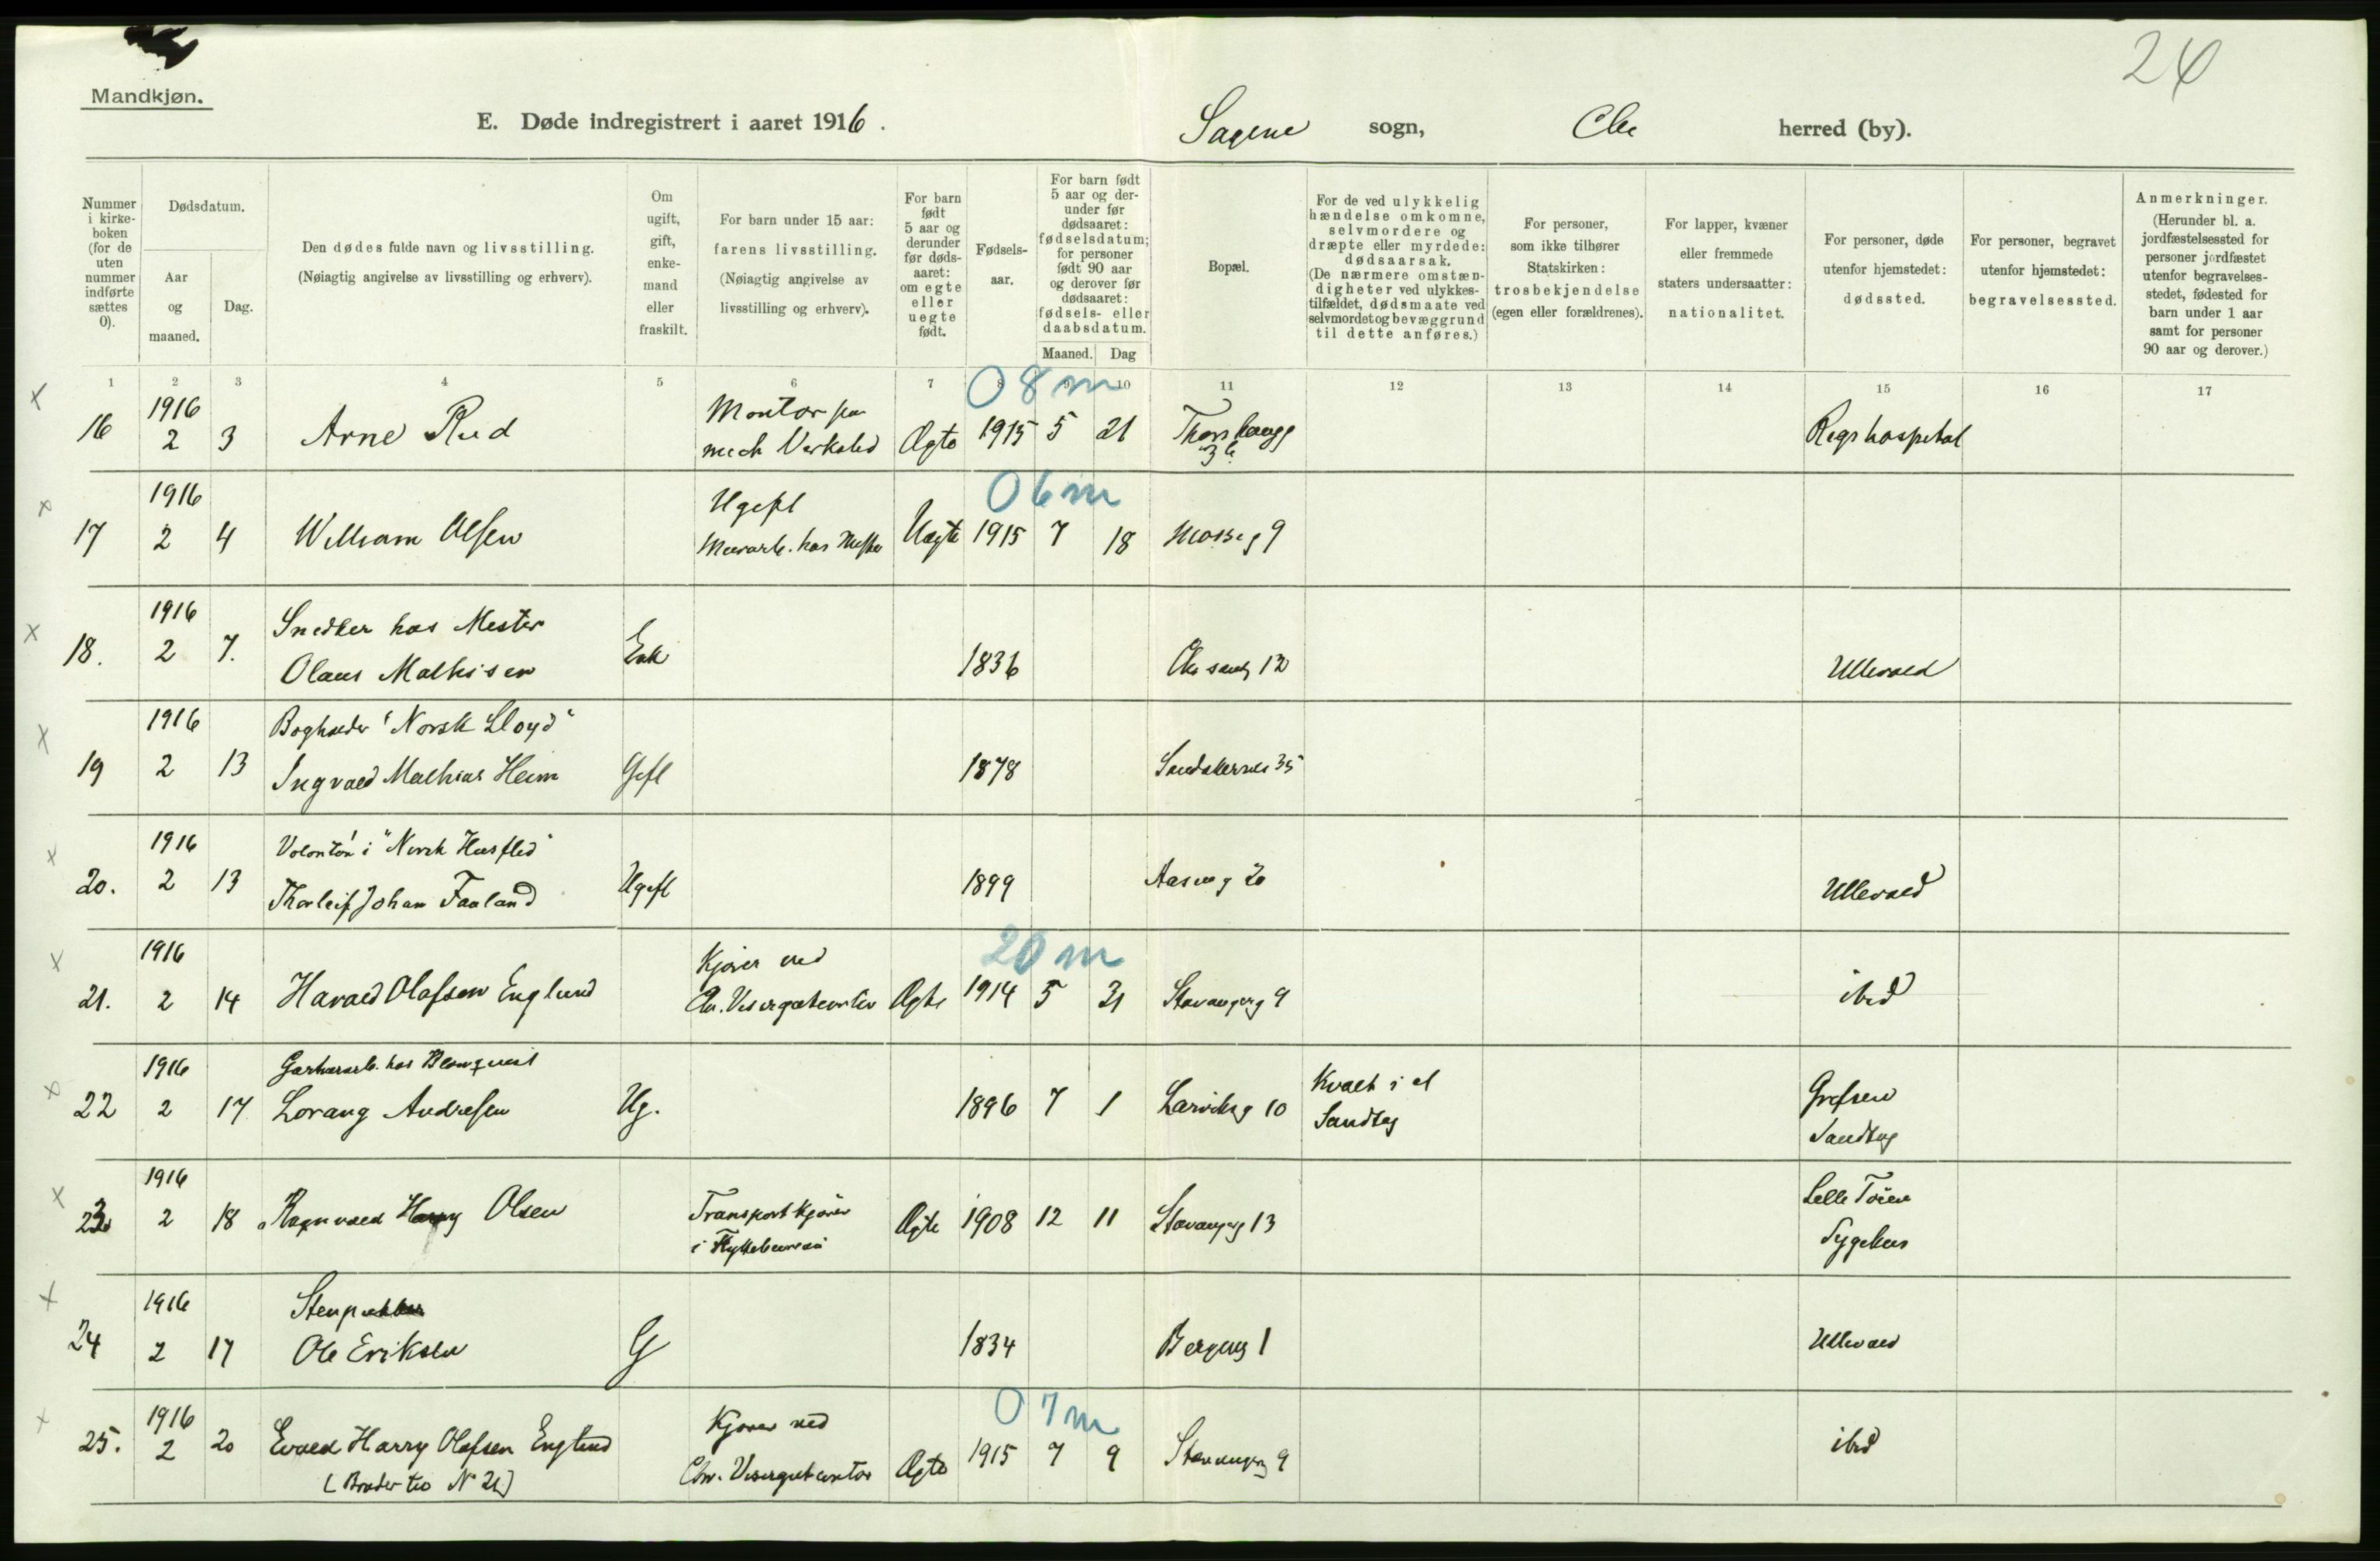 26
Mandkjøn.
E. Døde indregistrert i aaret 1916.
Sagene sogn, Chr herred (by).
Nummer i kirke-boken (for de uten nummer indførte sættes 0).
Dødsdatum.
Aar og maaned.
Dag.
Den dødes fulde navn og livsstilling.
(Nøiagtig angivelse av livsstilling og erhverv).
Om ugift, gift, enke-mand eller fraskilt.
For barn under 15 aar: farens livsstilling.
(Nøiagtig angivelse av livsstilling og erhverv).
For barn født 5 aar og derunder før døds-aaret: om egte eller uegte født.
Fødsels-aar.
For barn født 5 aar og der-under før dødsaaret: fødselsdatum; for personer født 90 aar og derover før dødsaaret: fødsels- eller daabsdatum.
Maaned. Dag
Bopæl.
For de ved ulykkelig hændelse omkomne, selvmordere og dræpte eller myrdede: dødsaarsak.
(De nærmere omstæn-digheter ved ulykkes-tilfældet, dødsmaate ved selvmordet og bevæggrund til dette anføres.)
For personer, som ikke tilhører Statskirken: trosbekjendelse (egen eller forældrenes).
For lapper, kvæner eller fremmede staters undersaatter: nationalitet.
For personer, døde utenfor hjemstedet: dødssted.
For personer, begravet utenfor hjemstedet: begravelsessted.
Anmerkninger.
(Herunder bl. a. jordfæstelsessted for personer jordfæstet utenfor begravelses-stedet, fødested for barn under 1 aar samt for personer 90 aar og derover.)
1 2 3 4 5 6 7 8 9 10 11 12 13 14 15 16 17
08m
16 1916 2 3 Arne Rud Montør paa mech Verksted Ægte 1915 5 21 Rigshospital
06m
17 1916 2 4 William Olsen Ugift Uægte 1915 7 18 Mosseg 9
18. 1916 2 7. Snedker hos Mester
Olaus Mathisen Enk 1836 Ullevaal
19 1916 2 13 Bogholder "Norsk Lloyd"
Ingvald Mathias Heim Gift 1878 35
20. 1916 2 13 Volontør i "Norsk Husflid"
Thorleif Johan Faaland Ugift 1899 Ullevaal
20 m
21. 1916 2 14 Harald Olafsen Englund Kjører ved Chr. Ægte 1914 5 31 Stavangerg 9 ibid
22 1916 2 17 Garverarb. hos Blomqvist
Lorang Andresen Ug. 1896 7 1 Larviksg 10 Kvalt i et Sandtag Grefsen Sandtag
23 1916 2 18 Ragnvald Harry Olsen Transportkjører i Flyttebureau Ægte 1908 12 11 Stavangerg 13 Lille Tøien Sygehus
24 1916 2 17 Ole Eriksen G 1834 Bergensg 1 Ullevaal
07m
25. 1916 2 20 Evald Harry Olafsen Englund Kjører ved Chr. Ægte 1915 7 9 Stavangerg 9 ibid
[Broder til No 21]